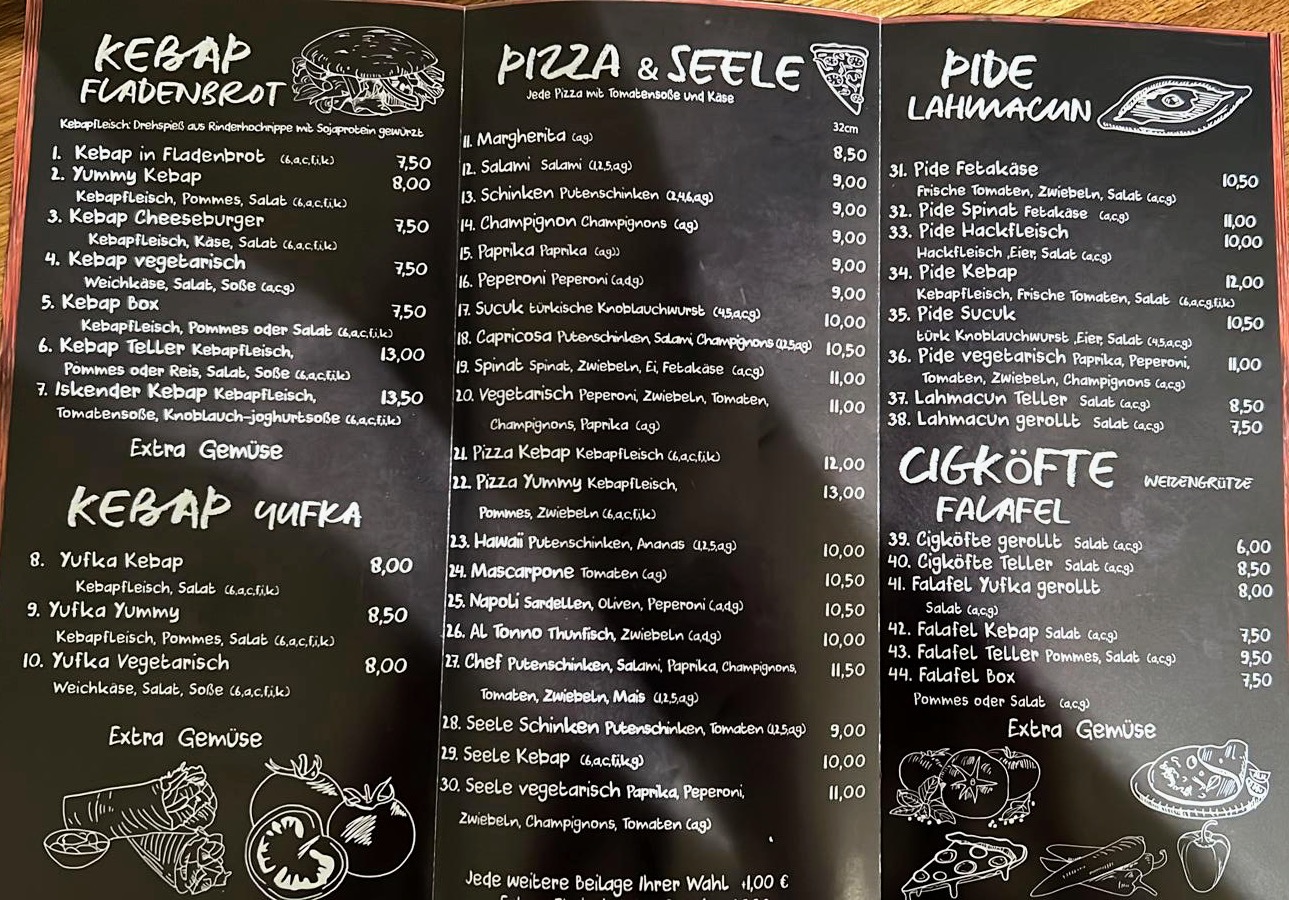 KEBAP
FLADENBROT
Kebapfleisch: Drehspieß aus Rinderhochrippe mit Sojaprotein gewürzt
1. Kebap in Fladenbrot (6,a,c,f,i,k) 7,50
2. Yummy Kebap 8,00
Kebapfleisch, Pommes, Salat (6,a,c,f,i,k)
3. Kebap Cheeseburger 7,50
Kebapfleisch, Käse, Salat (6,a,c,f,i,k)
4. Kebap vegetarisch 7,50
Weichkäse, Salat, Soße (a,c,g)
5. Kebap Box 7,50
Kebapfleisch, Pommes oder Salat (6,a,c,f,i,k)
6. Kebap Teller Kebapfleisch, 13,00
Pommes oder Reis, Salat, Soße (6,a,c,f,i,k)
7. Iskender Kebap Kebapfleisch, 13,50
Tomatensoße, Knoblauch-joghurtsoße (6,a,c,f,i,k)
Extra Gemüse
KEBAP YUFKA
8. Yufka Kebap 8,00
Kebapfleisch, Salat (6,a,c,f,i,k)
9. Yufka Yummy 8,50
Kebapfleisch, Pommes, Salat (6,a,c,f,i,k)
10. Yufka Vegetarisch 8,00
Weichkäse, Salat, Soße (6,a,c,f,i,k)
Extra Gemüse
PIZZA & SEELE
Jede Pizza mit Tomatensoße und Käse
32cm
11. Margherita (a,g) 8,50
12. Salami Salami (1,2,5,a,g) 9,00
13. Schinken Putenschinken (2,4,6,a,g) 9,00
14. Champignon Champignons (a,g) 9,00
15. Paprika Paprika (a,g)) 9,00
16. Peperoni Peperoni (a,d,g) 9,00
17. Sucuk türkische Knoblauchwurst (4,5,a,c,g) 10,00
18. Capricosa Putenschinken, Salami, Champignons (1,2,5,a,g) 10,50
19. Spinat Spinat, Zwiebeln, Ei, Fetakäse (a,c,g) 11,00
20. Vegetarisch Peperoni, Zwiebeln, Tomaten, 11,00
Champignons, Paprika (a,g)
21. Pizza Kebap Kebapfleisch (6,a,c,f,i,k) 12,00
22. Pizza Yummy Kebapfleisch, 13,00
Pommes, Zwiebeln (6,a,c,f,i,k)
23. Hawaii Putenschinken, Ananas (1,2,5,a,g) 10,00
24. Mascarpone Tomaten (a,g) 10,50
25. Napoli Sardellen, Oliven, Peperoni (,a,d,g) 10,50
26. AL Tonno Thunfisch, Zwiebeln (a,d,g) 10,00
27. Chef Putenschinken, Salami, Paprika, Champignons, 11,50
Tomaten, Zwiebeln, Mais (1,2,5,a,g)
28. Seele Schinken Putenschinken, Tomaten (1,2,5,a,g) 9,00
29. Seele Kebap (6,a,c,f,i,k,g) 10,00
30. Seele vegetarisch Paprika, Peperoni, 11,00
Zwiebeln, Champignons, Tomaten (a,g)
Jede weitere Beilage Ihrer Wahl +1,00 €
PIDE
LAHMACUN
31. Pide Fetakäse 10,50
Frische Tomaten, Zwiebeln, Salat (a,c,g)
32. Pide Spinat Fetakäse (a,c,g) 11,00
33. Pide Hackfleisch 10,00
Hackfleisch ,Eier, Salat (a,c,g)
34. Pide Kebap 12,00
Kebapfleisch, Frische Tomaten, Salat (6,a,c,g,f,i,k)
35. Pide Sucuk 10,50
türk Knoblauchwurst ,Eier, Salat (4,5,a,c,g)
36. Pide vegetarisch Paprika, Peperoni, 11,00
Tomaten, Zwiebeln, Champignons (a,c,g)
37. Lahmacun Teller Salat (a,c,g) 8,50
38. Lahmacun gerollt Salat (a,c,g) 7,50
CIGKÖFTE WEIZENGRÜTZE
FALAFEL
39. Cigköfte gerollt Salat (a,c,g) 6,00
40. Cigköfte Teller Salat (a,c,g) 8,50
41. Falafel Yufka gerollt 8,00
Salat (a,c,g)
42. Falafel Kebap Salat (a,c,g) 7,50
43. Falafel Teller Pommes, Salat (a,c,g) 9,50
44. Falafel Box 7,50
Pommes oder Salat (a,c,g)
Extra Gemüse